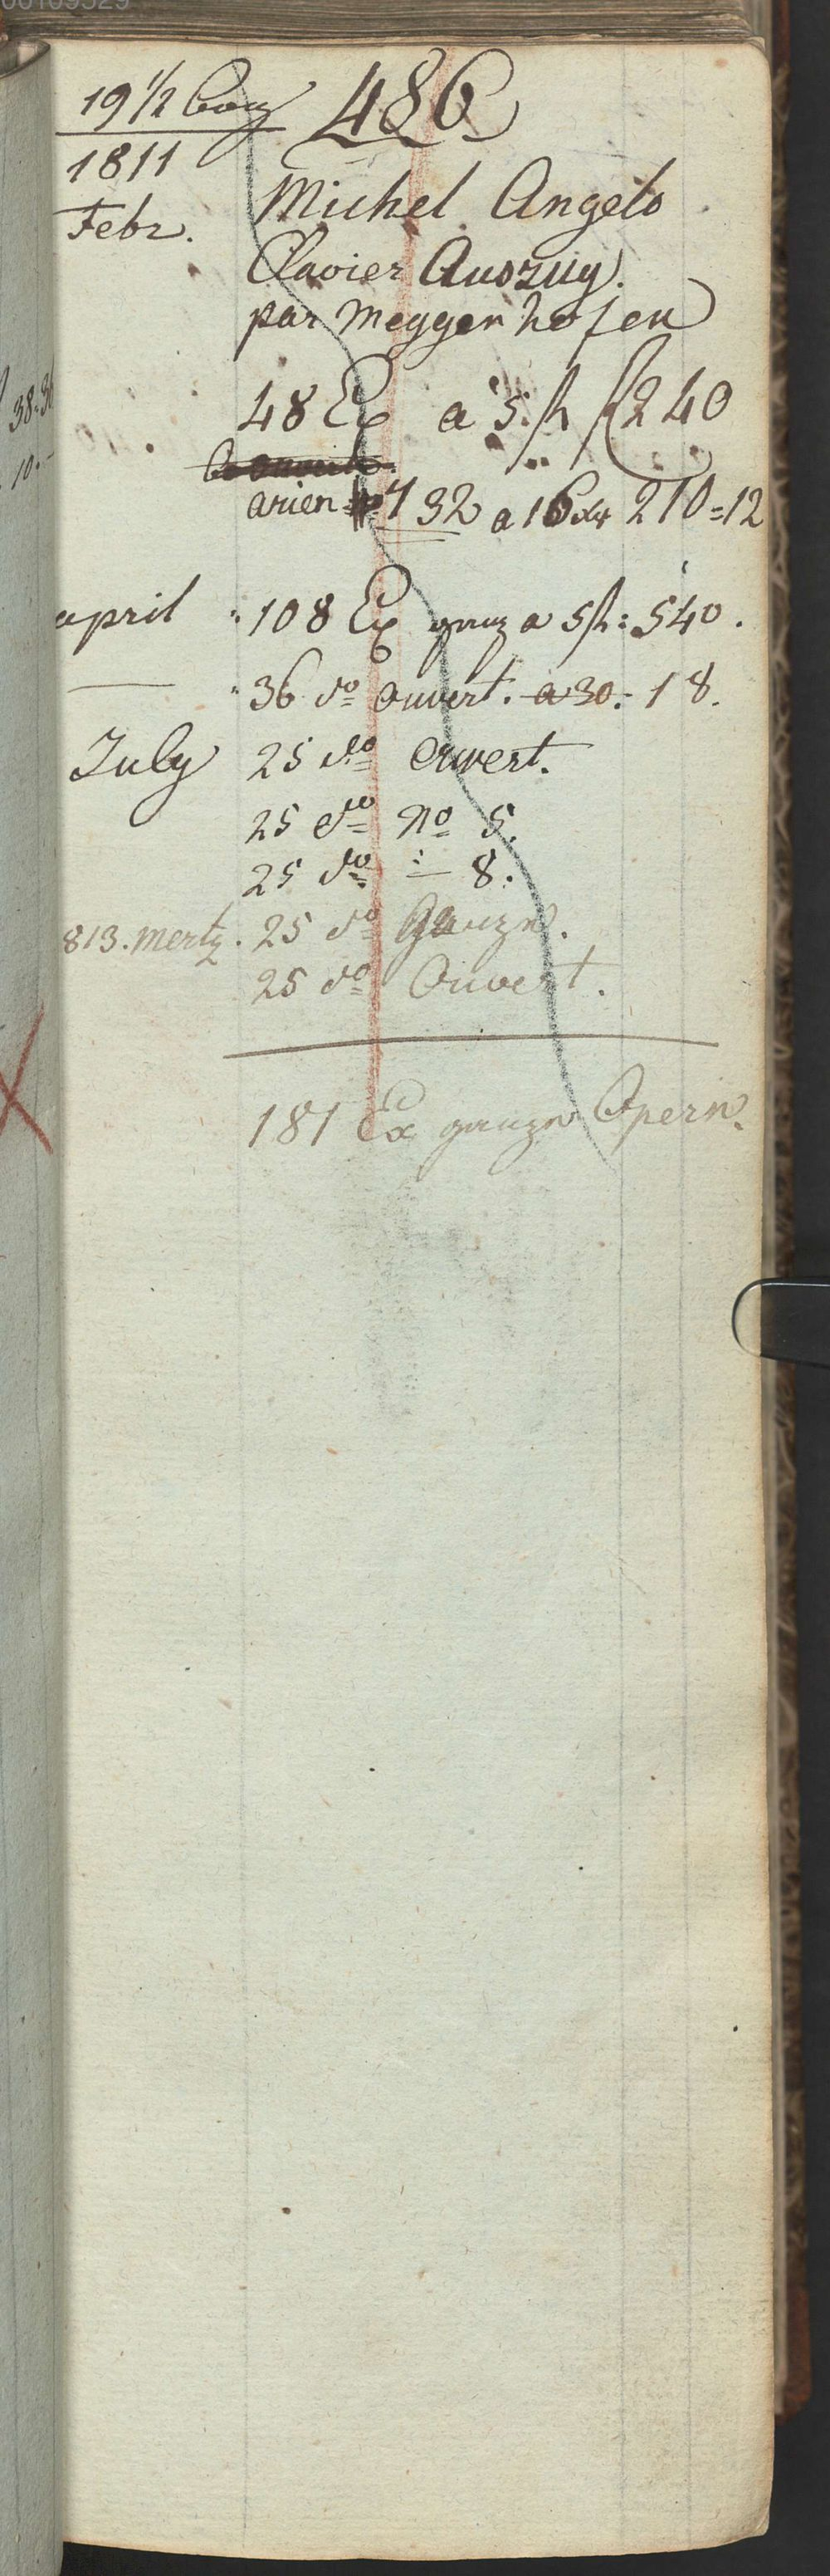 00109529
19 1/2 bog
486
1811
Febr.
Michel Angelo
Clavier Auszug.
par Meggenhofen
48 Ex a 5 fl f 240
arien 732 a 16 xr 210=12
april " 108 Ex ganz a 5 fl: 540.
" 36 do ouvert. a 30. - 18.
July 25 do ouvert.
25 do No 5.
25 do " - 8.
813. Mertz. 25 do Ganze.
25 do Ouvert.
181 Ex ganze Opern.
38.3
10.